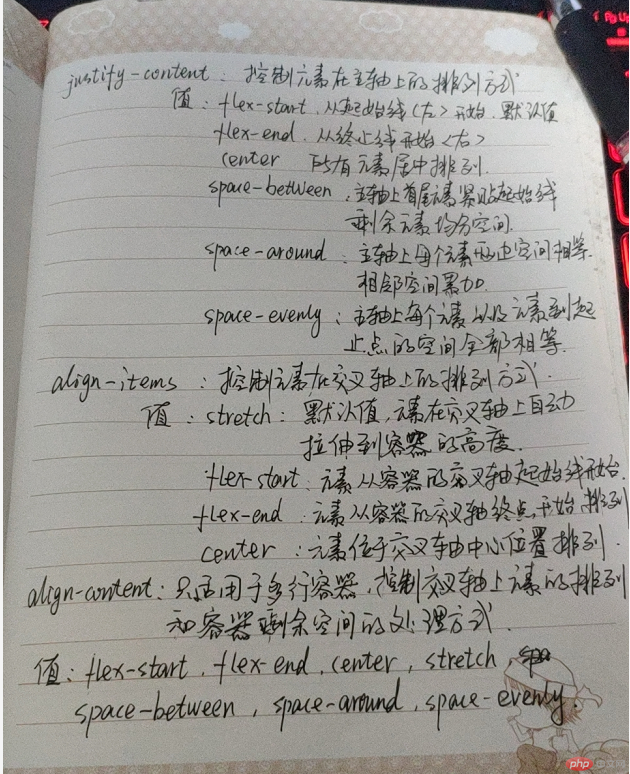 justify-content：控制元素在主轴上的排列方式
值：flex-start．从起始线（左）开始．默认值
flex-end．从终止线开始<右>
center 所有元素居中排列．
space-between：主轴上首尾元素紧贴起始线
剩余元素均分空间．
space-around：主轴上每个元素周边空间相等．
相邻空间累加．
space-evenly：主轴上每个元素以及元素到起
止点的空间全部相等．
align-items：控制元素在交叉轴上的排列方式．
值：stretch：默认值，元素在交叉轴上自动
拉伸到容器的高度．
flex-start：元素从容器的交叉轴起始线开始．
flex-end：元素从容器的交叉轴终点开始排列
center：元素位于交叉轴中心位置排列．
align-content：只适用于多行容器，控制交叉轴上元素的排列
和容器剩余空间的处理方式．
值：flex-start，flex-end，center，stretch，
space-between，space-around，space-evenly．
php 中文网